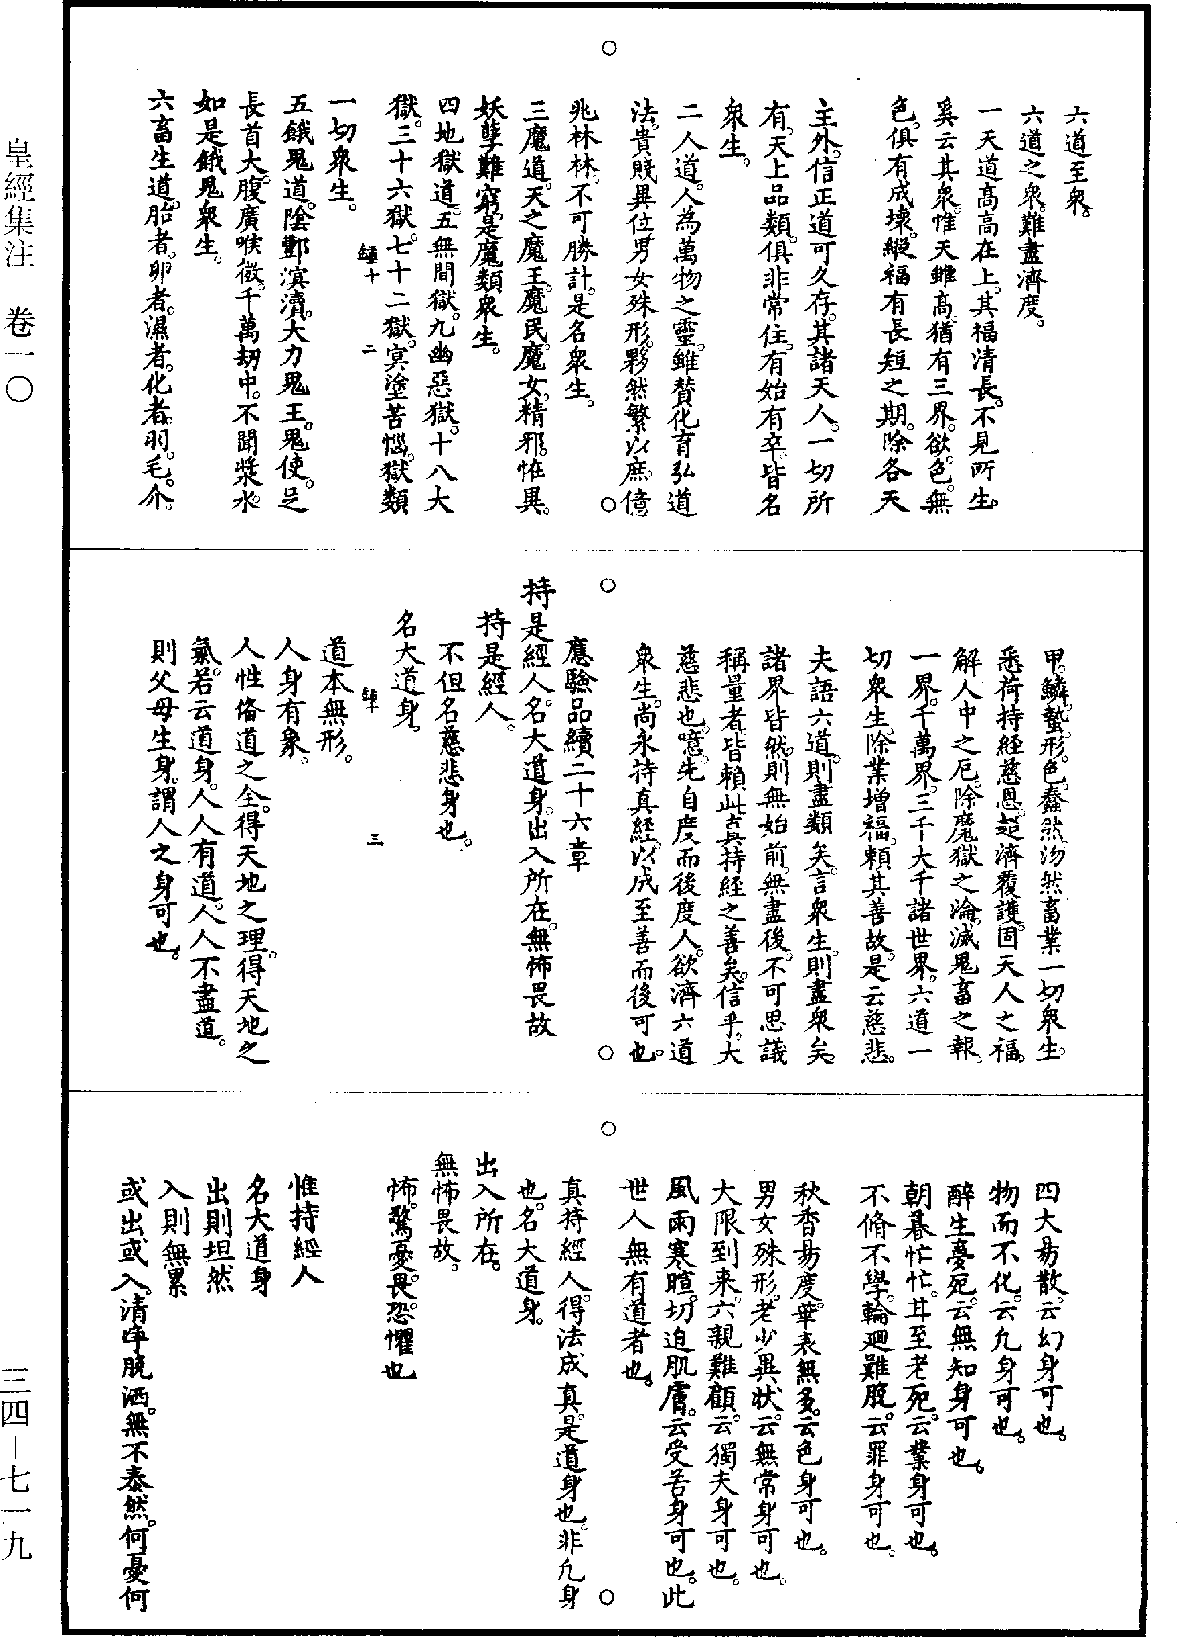 皇經集注　卷一〇
六道至衆。
六道之衆。難盡濟度。
一天道高高在上。其福清長。不見所生。
奚云其衆。惟天雖高。猶有三界。欲。色。無
色。俱有成壞。縱福有長短之期。除各天
主外。信正道可久存。其諸天人。一切所
有。天上品類。俱非常住。有始有卒。皆名
衆生。
二人道。人為萬物之靈。雖賛化育弘道
法。貴賤異位。男女殊形。夥然繁以庶。億
兆林林。不可勝計。是名衆生。
三魔道。天之魔王。魔民。魔女。精邪。恠異。
妖孽難窮。是魔類衆生。
四地獄道。五無間獄。九幽惡獄。十八大
獄。三十六獄。七十二獄。冥塗苦惱。獄類
一切衆生。
五餓鬼道。陰酆溟濟。大力鬼王。鬼使。足
長首大。腹廣喉微。千萬刼中。不聞漿水。
如是餓鬼衆生。
六畜生道。胎者。卵者。濕者。化者。羽。毛。介。
甲。鱗。蟄。形。色。蠢然沕然畜業一切衆生。
悉荷持經慈恩。超濟覆護。固天人之福。
解人中之厄。除魔獄之淪。滅鬼畜之報。
一界。千萬界。三千大千諸世界。六道一
切衆生。除業增福。頼其善故。是云慈悲。
夫語六道。則盡類矣。言衆生。則盡衆矣。
諸界皆然。則無始前。無盡後。不可思議
稱量者。皆賴此真持經之善矣。信乎。大
慈悲也。噫。先自度而後度人。欲濟六道
衆生。尚永持真經。以成至善而後可也。
應驗品續二十六章
持是經人。名大道身。出入所在。無怖畏故
持是經人。
不但名慈悲身也。
名大道身。
道本無形。
人身有象。
人性俻道之全。得天地之理。得天地之
氣。若云道身。人人有道。人人不盡道。
則父母生身。謂人之身可也。
四大易散。云幻身可也。
物而不化。云凡身可也。
醉生夢死。云無知身可也。
朝暮忙忙。甘至老死。云業身可也。
不脩不學。輪廻難脫。云罪身可也。
秋香易度。華表無多。云色身可也。
男女殊形。老少異狀。云無常身可也。
大限到来。六親難顧。云獨夫身可也。
風雨寒暄。切迫肌膚。云受苦身可也。此
世人無有道者也。
真持經人。得法成真。是道身也。非凡身
也。名大道身。
出入所在。
無怖畏故。
怖。驚憂。畏。恐懼也
惟持經人
名大道身
出則坦然
入則無累
或出或入。清淨脫洒。無不泰然。何憂何
三四—七一九